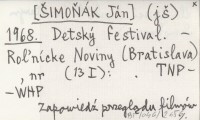 [ŠIMOŇÁK Ján] (jš)
1968. Detský festival. -
Roľnícke Noviny (Bratislava)
, nr (13 I): . TNP-
-WHP
Zapowiedź przeglądu filmów